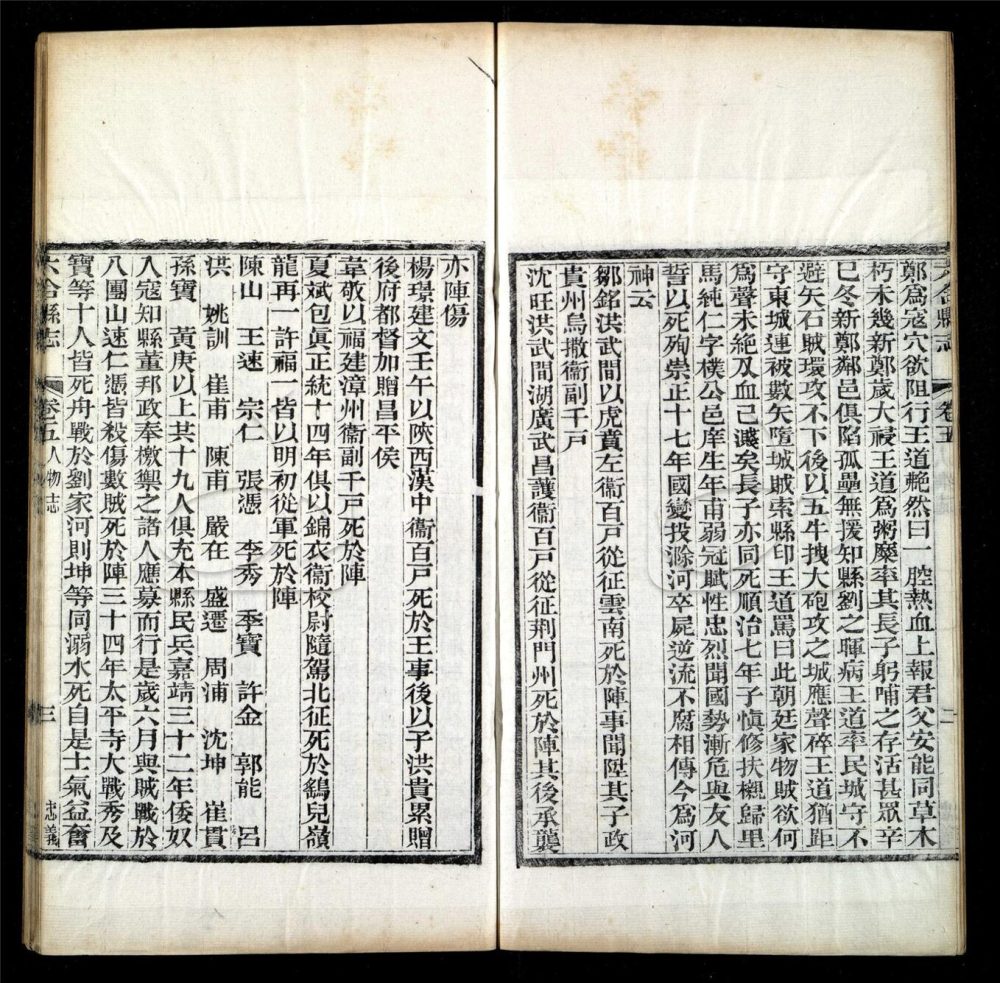 六合縣志 卷五 二
鄭爲寇穴欲阻行王道艴然曰一腔熱血上報君父安能同草木
朽未幾新鄭歲大祲王道爲粥糜率其長子躬哺之存活甚眾辛
巳冬新鄭鄰邑俱陷孤壘無援知縣劉之暉病王道率民城守不
避矢石賊環攻不下後以五牛拽大砲攻之城應聲碎王道猶距
守東城連被數矢墮城賊索縣印王道罵曰此朝廷家物賊欲何
爲聲未絶及血已濺矣長子亦同死順治七年子愼修扶櫬歸里
馬純仁字樸公邑庠生年甫弱冠賦性忠烈聞國勢漸危與友人
誓以死殉崇正十七年國變投滁河卒屍逆流不腐相傳今爲河
神云
鄒銘洪武間以虎賁左衞百戸從征雲南死於陣事聞陞其子政
貴州烏撒衞副千戸
沈旺洪武間湖廣武昌護衞百戸從征荆門州死於陣其後承襲
亦陣傷
楊璟建文壬午以陝西漢中衞百戸死於王事後以子洪貴累贈
後府都督加贈昌平侯
韋敬以福建漳州衞副千戸死於陣
夏斌包眞正統十四年俱以錦衣衞校尉隨駕北征死於鷂兒嶺
龍再一許福一皆以明初從軍死於陣
陳山 王速 宗仁 張憑 李秀 季寶 許金 郭能 呂
洪 姚訓 崔甫 陳甫 嚴在 盛遷 周浦 沈坤 崔貫
孫寶 黃庚以上共十九人俱充本縣民兵嘉靖三十二年倭奴
入寇知縣董邦政奉檄禦之諸人應募而行是歲六月與賊戰於
八團山速仁憑皆殺傷數賊死於陣三十四年太平寺大戰秀及
寶等十人皆死舟戰於劉家河則坤等同溺水死自是士氣益奮
六合縣志 卷五人物志 三 忠義